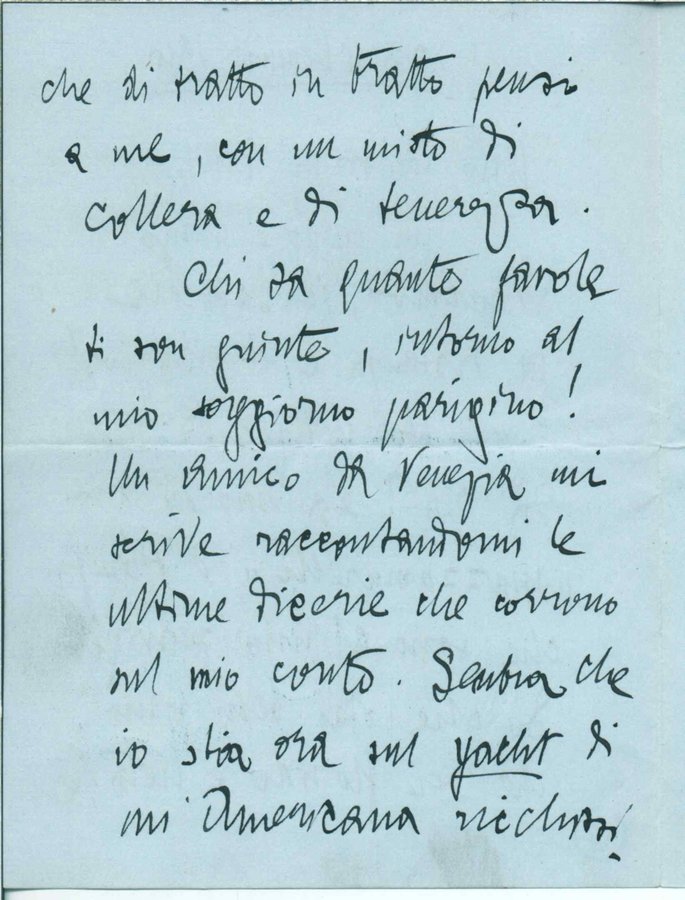 che di tratto in tratto pensi
a me, con un misto di
collera e di tenerezza.
Chi sa quante favole
ti son giunte, intorno al
mio soggiorno parigino!
Un amico da Venezia mi
scrive raccontandomi le
ultime dicerie che corrono
sul mio conto. Sembra che
io stia ora sul yacht di
un'Americana ricchissi